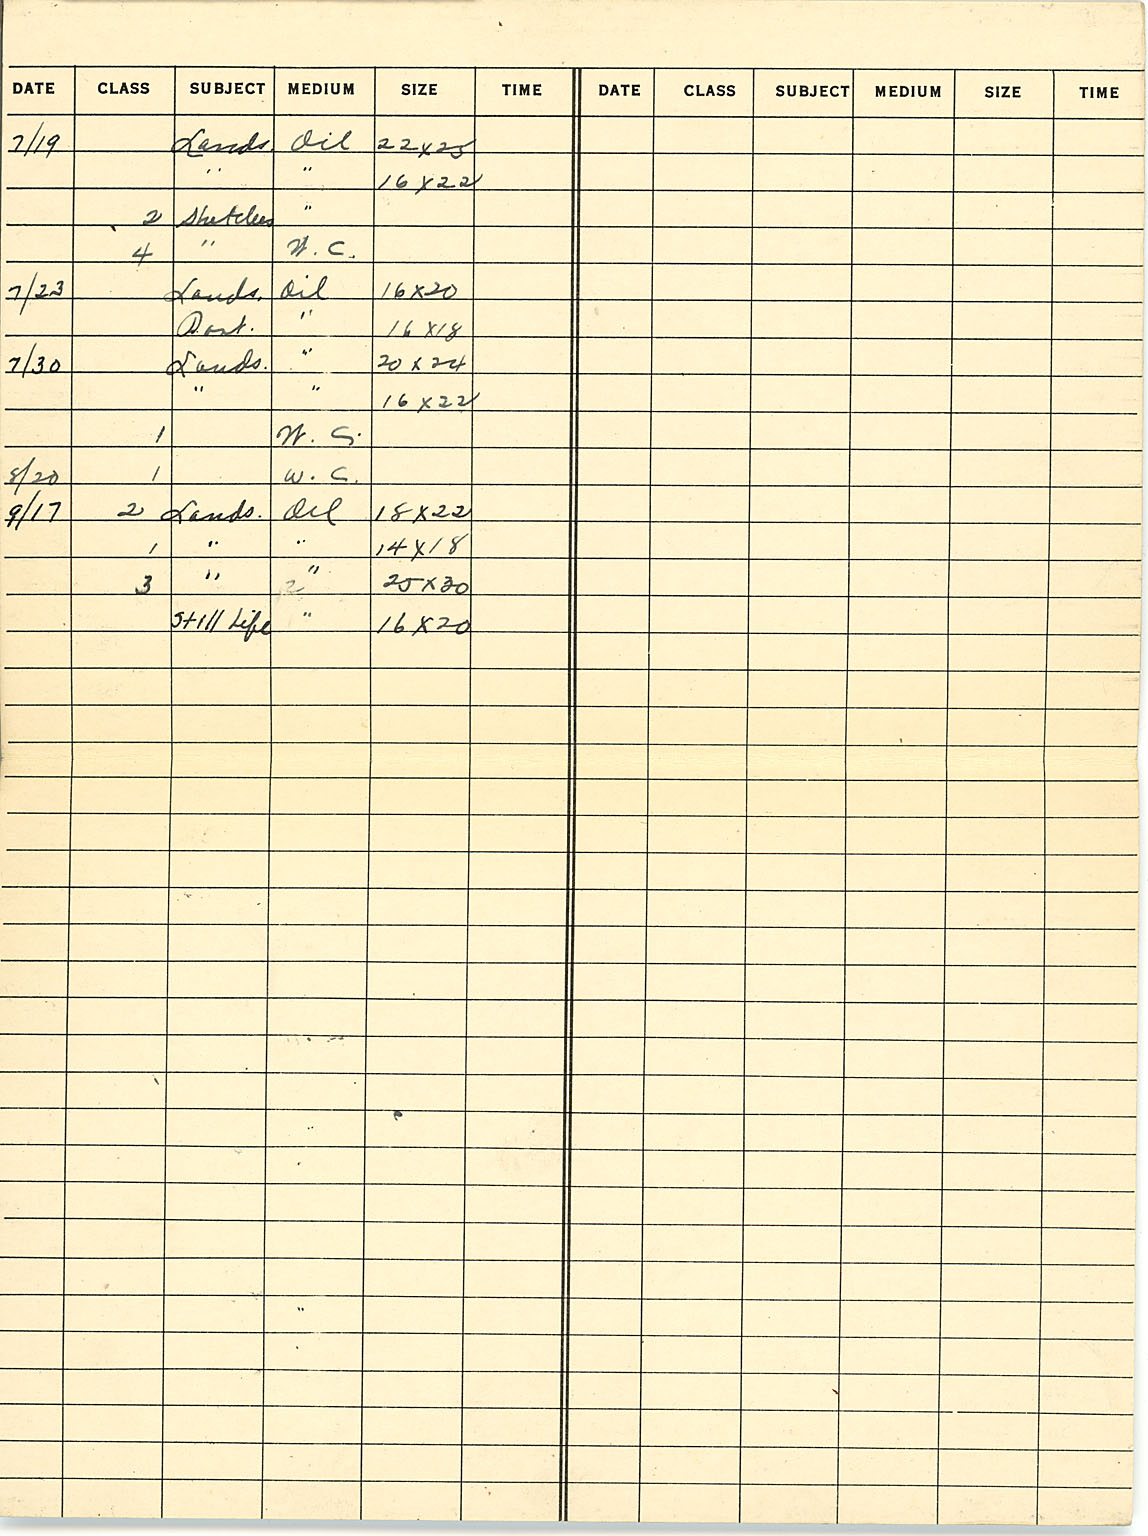 DATE CLASS SUBJECT MEDIUM SIZE TIME DATE CLASS SUBJECT MEDIUM SIZE TIME
7/19 Lands. Oil 22x25
" " 16x22
2 Sketches "
4 " W.C.
7/23 Lands. Oil 16x20
Port. " 16x18
7/30 Lands. " 20x24
" " 16x22
1 W.C.
8/20 1 W.C.
9/17 2 Lands. Oil 18x22
1 " " 14x18
3 " " 25x30
Still Life " 16x20